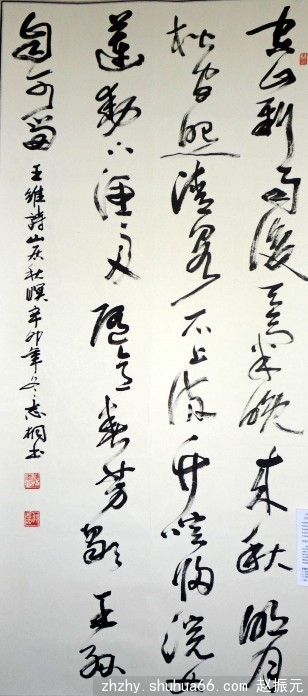 空山新雨后天气晚来秋明月
松间照清泉石上流竹喧归浣女
莲动下渔舟随意春芳歇王孙
自可留
王維詩山居秋暝辛卯年冬志桐书
zhzhy.shuhua66.com @ 赵振元